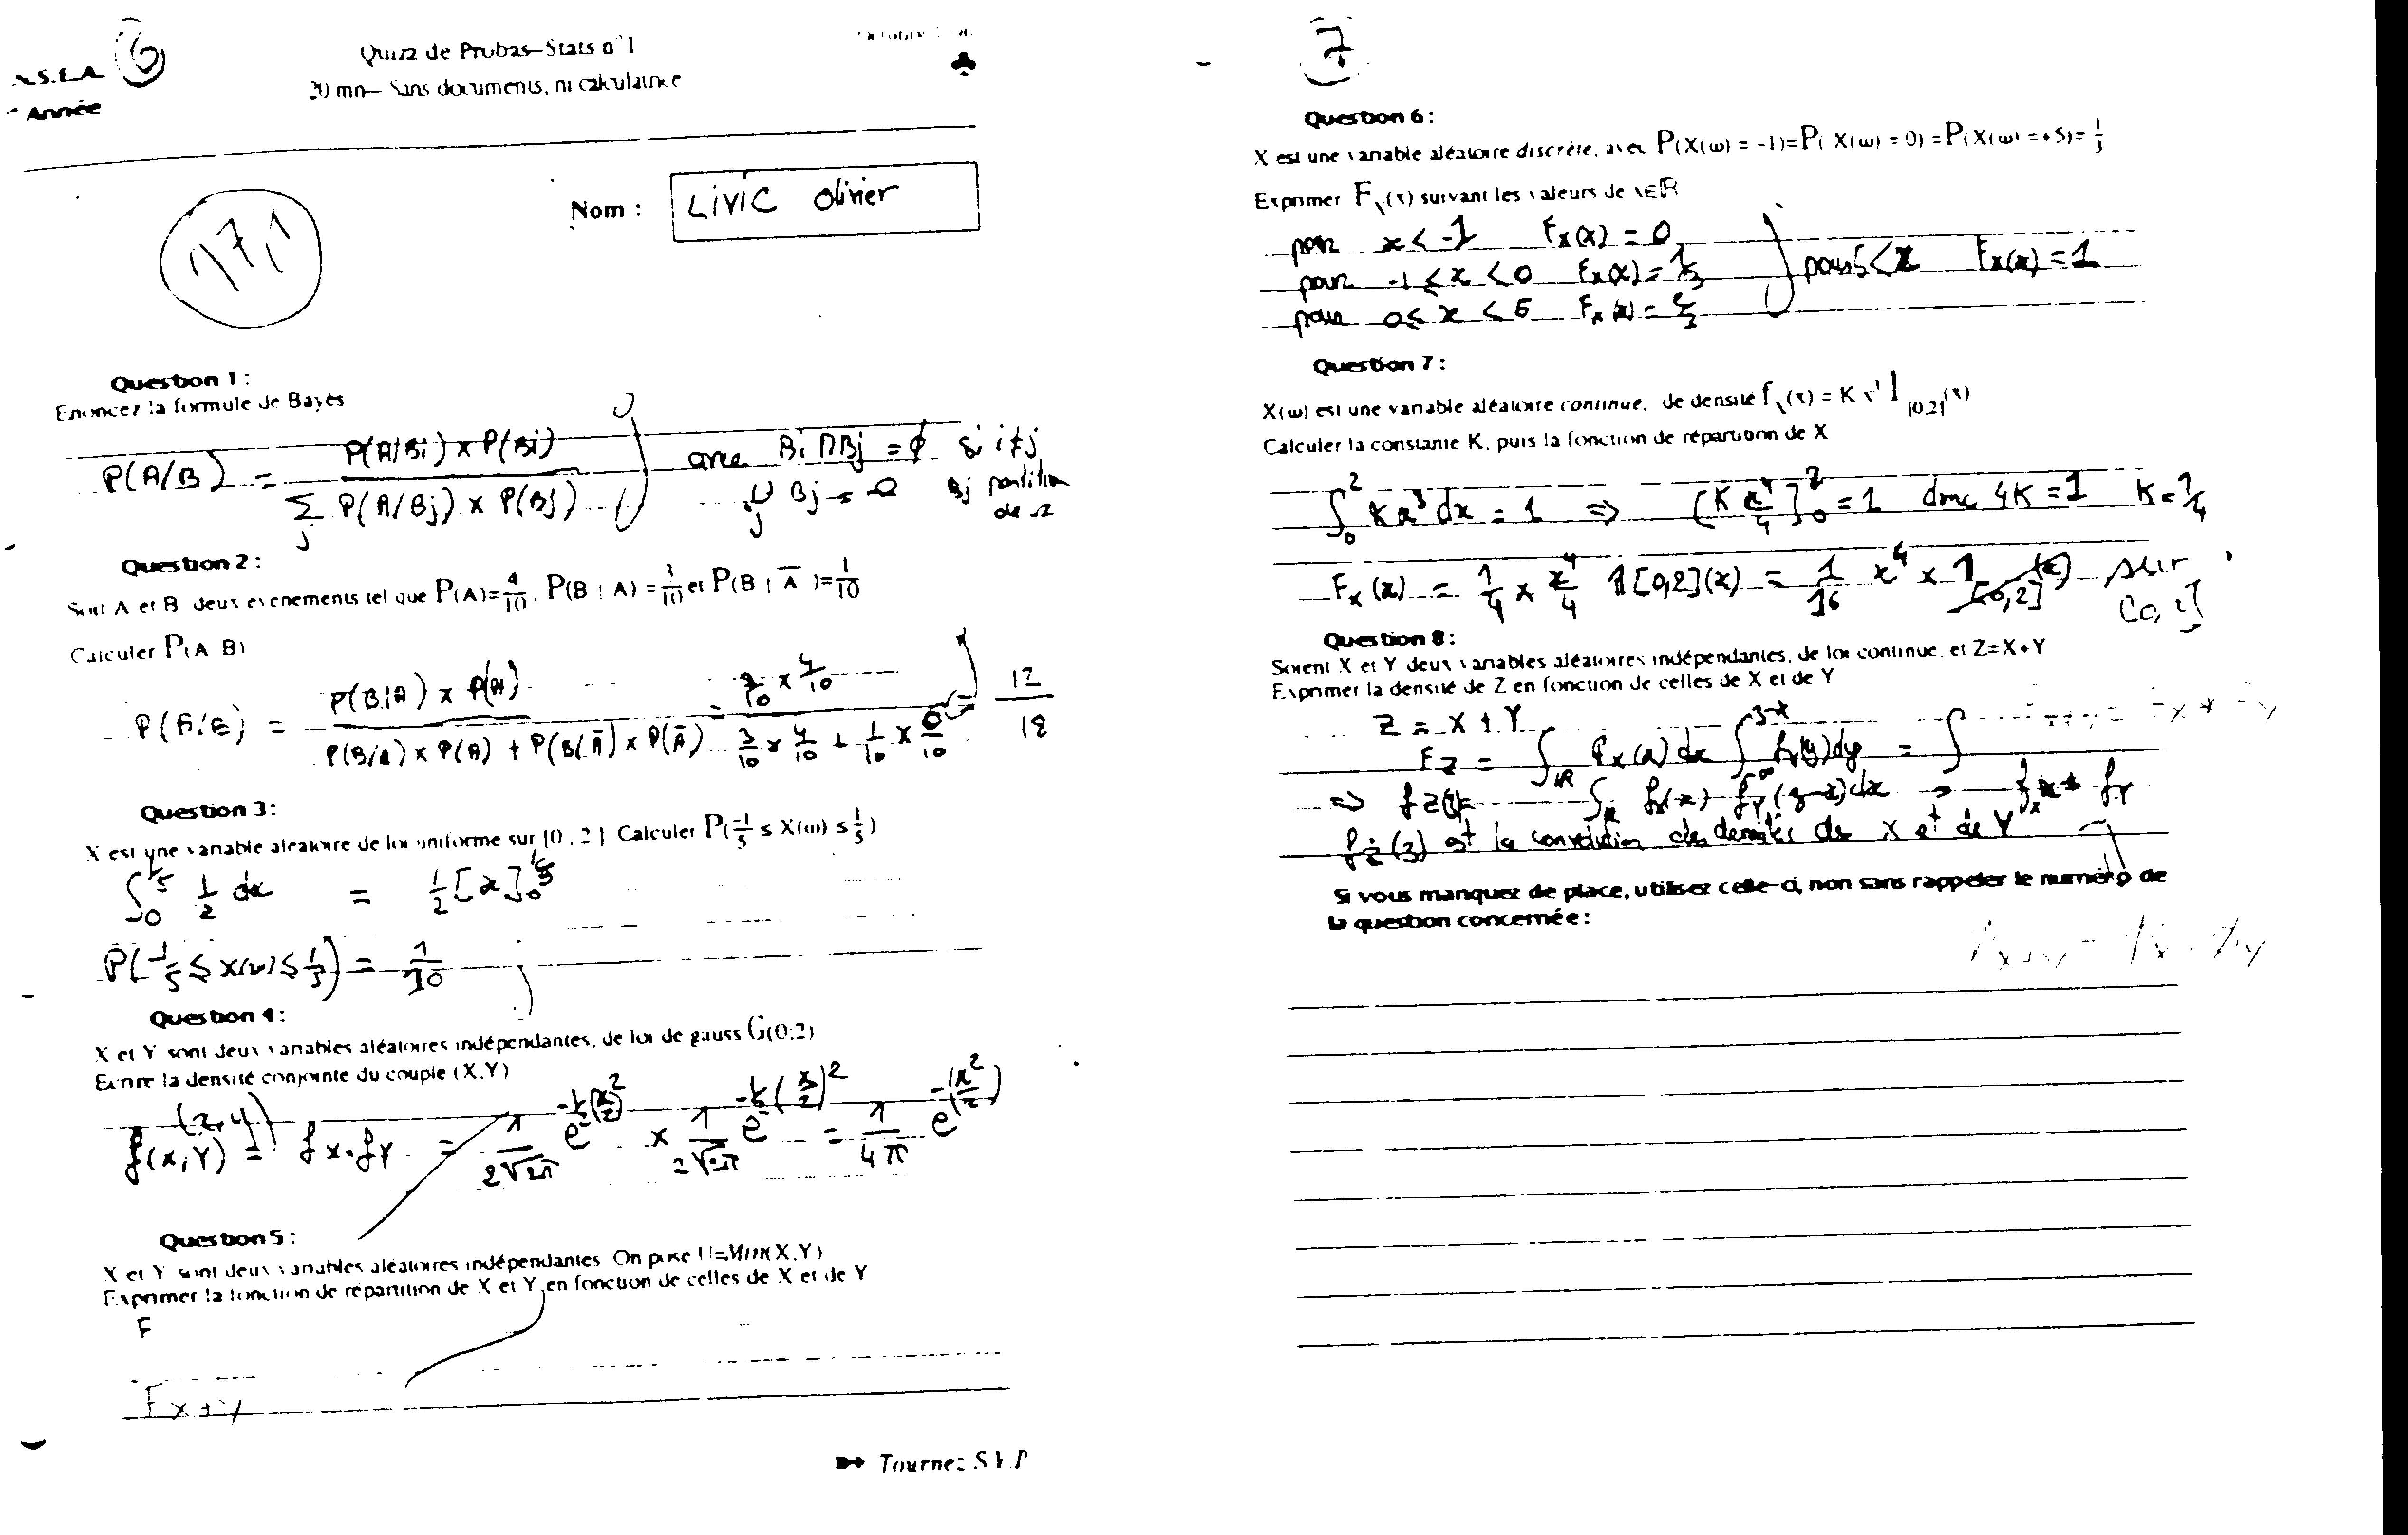 6
Quizz de Probas–Stats n°1
20 mn– Sans documents, ni calculatrice
Année
Nom :
LIVIC Olivier
17,1
Question 1 :
Enoncez la formule de Bayès
P(A/B) = P(A/Bi) x P(Bi) / ∑j P(A/Bj) x P(Bj)
avec Bi ∩ Bj = ∅ si i≠j
∪j Bj = Ω Bj partition de Ω
Question 2 :
Soit A et B deux évenements tel que P(A)=4/10, P(B | A) =3/10 et P(B | Ā )=1/10
Calculer P(A B)
P(A/B) = P(B/A) x P(A) / P(B/A) x P(A) + P(B/Ā) x P(Ā) = 3/10 x 4/10 / 3/10 x 4/10 + 1/10 x 6/10 = 12/18
Question 3 :
X est une variable aléatoire de loi uniforme sur [0 , 2 ] Calculer P(-1/5 ≤ X(ω) ≤ 1/5)
∫0^1/5 1/2 dx = 1/2 [x]0^1/5
P(-1/5 ≤ X(ω) ≤ 1/5) = 1/10
Question 4 :
X et Y sont deux variables aléatoires indépendantes, de loi de gauss G(0;2)
Ecrire la densité conjointe du couple (X,Y)
(x,y)
f(X,Y) = fX.fY = 1/2√2π e^-½(x/2)² x 1/2√2π e^-½(x/2)² = 1/4π e^-(x²/2)
Question 5 :
X et Y sont deux variables aléatoires indépendantes On pose U=Min(X,Y)
Exprimer la fonction de répartition de X et Y en fonction de celles de X et de Y
F
F X+Y
Tournez S.V.P
7
Question 6 :
X est une variable aléatoire discrète, avec P(X(ω) = -1)=P( X(ω) = 0) =P(X(ω) =+5)= 1/3
Exprimer FX(x) suivant les valeurs de x∈ℝ
pour x < -1 FX(x) = 0
pour -1 ≤ x < 0 FX(x) = 1/3
pour 0 ≤ x < 5 FX(x) = 2/3
pour 5 < x FX(x) = 1
Question 7 :
X(ω) est une variable aléatoire continue, de densité fX(x) = K x³ 1[0,2](x)
Calculer la constante K, puis la fonction de répartition de X
∫0^2 Kx³ dx = 1 ⇒ [K x⁴/4]0^2 = 1 donc 4K = 1 K = 1/4
FX(x) = 1/4 x x⁴/4 1[0,2](x) = 1/16 x⁴ x 1[0,2](x) sur [0, 2]
Question 8 :
Soient X et Y deux variables aléatoires indépendantes, de loi continue, et Z=X+Y
Exprimer la densité de Z en fonction de celles de X et de Y
Z = X + Y
FZ = ∫ℝ fX(x) dx ∫-∞^3-x fY(y)dy = ∫
⇒ fZ(z) = ∫ℝ fX(x) fY(z-x)dx = fX * fY
fZ(z) est la convolution des densités de X et de Y
Si vous manquez de place, utilisez celle-ci, non sans rappeler le numéro de
la question concernée :